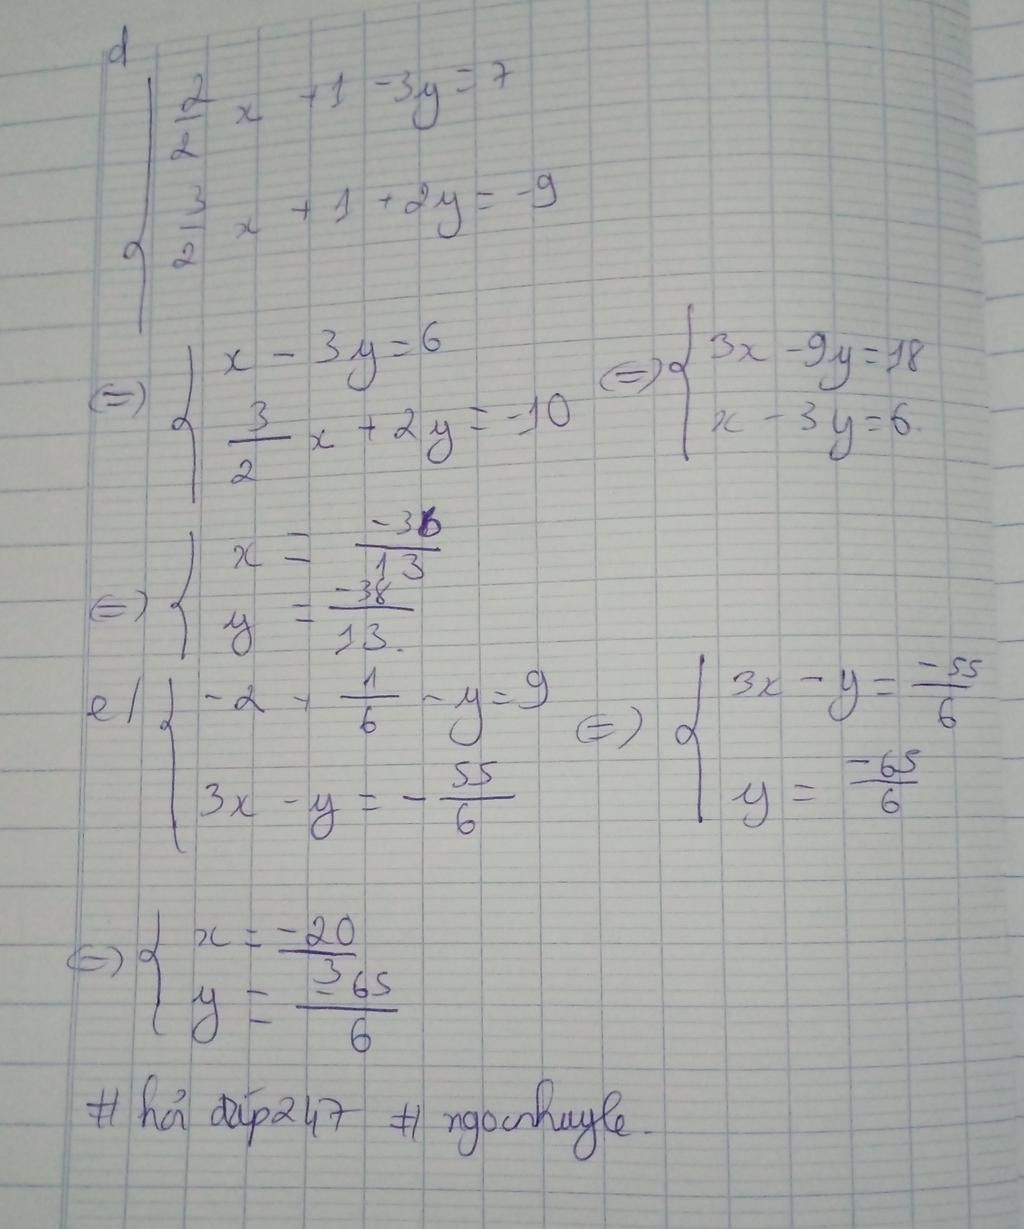 d
2/2 x + 1 - 3y = 7
3/2 x + 1 + 2y = -9
⇔ { x - 3y = 6
3/2 x + 2y = -10
⇔ { 3x - 9y = 18
x - 3y = 6.
⇔ { x = -36/13
y = -38/13.
e/ { -2 + 1/6 - y = 9
3x - y = -55/6
⇔ { 3x - y = -55/6
y = -65/6
⇔ { x = -20/3
y = -65/6
# hỏi đáp247 # ngocnhuyle.